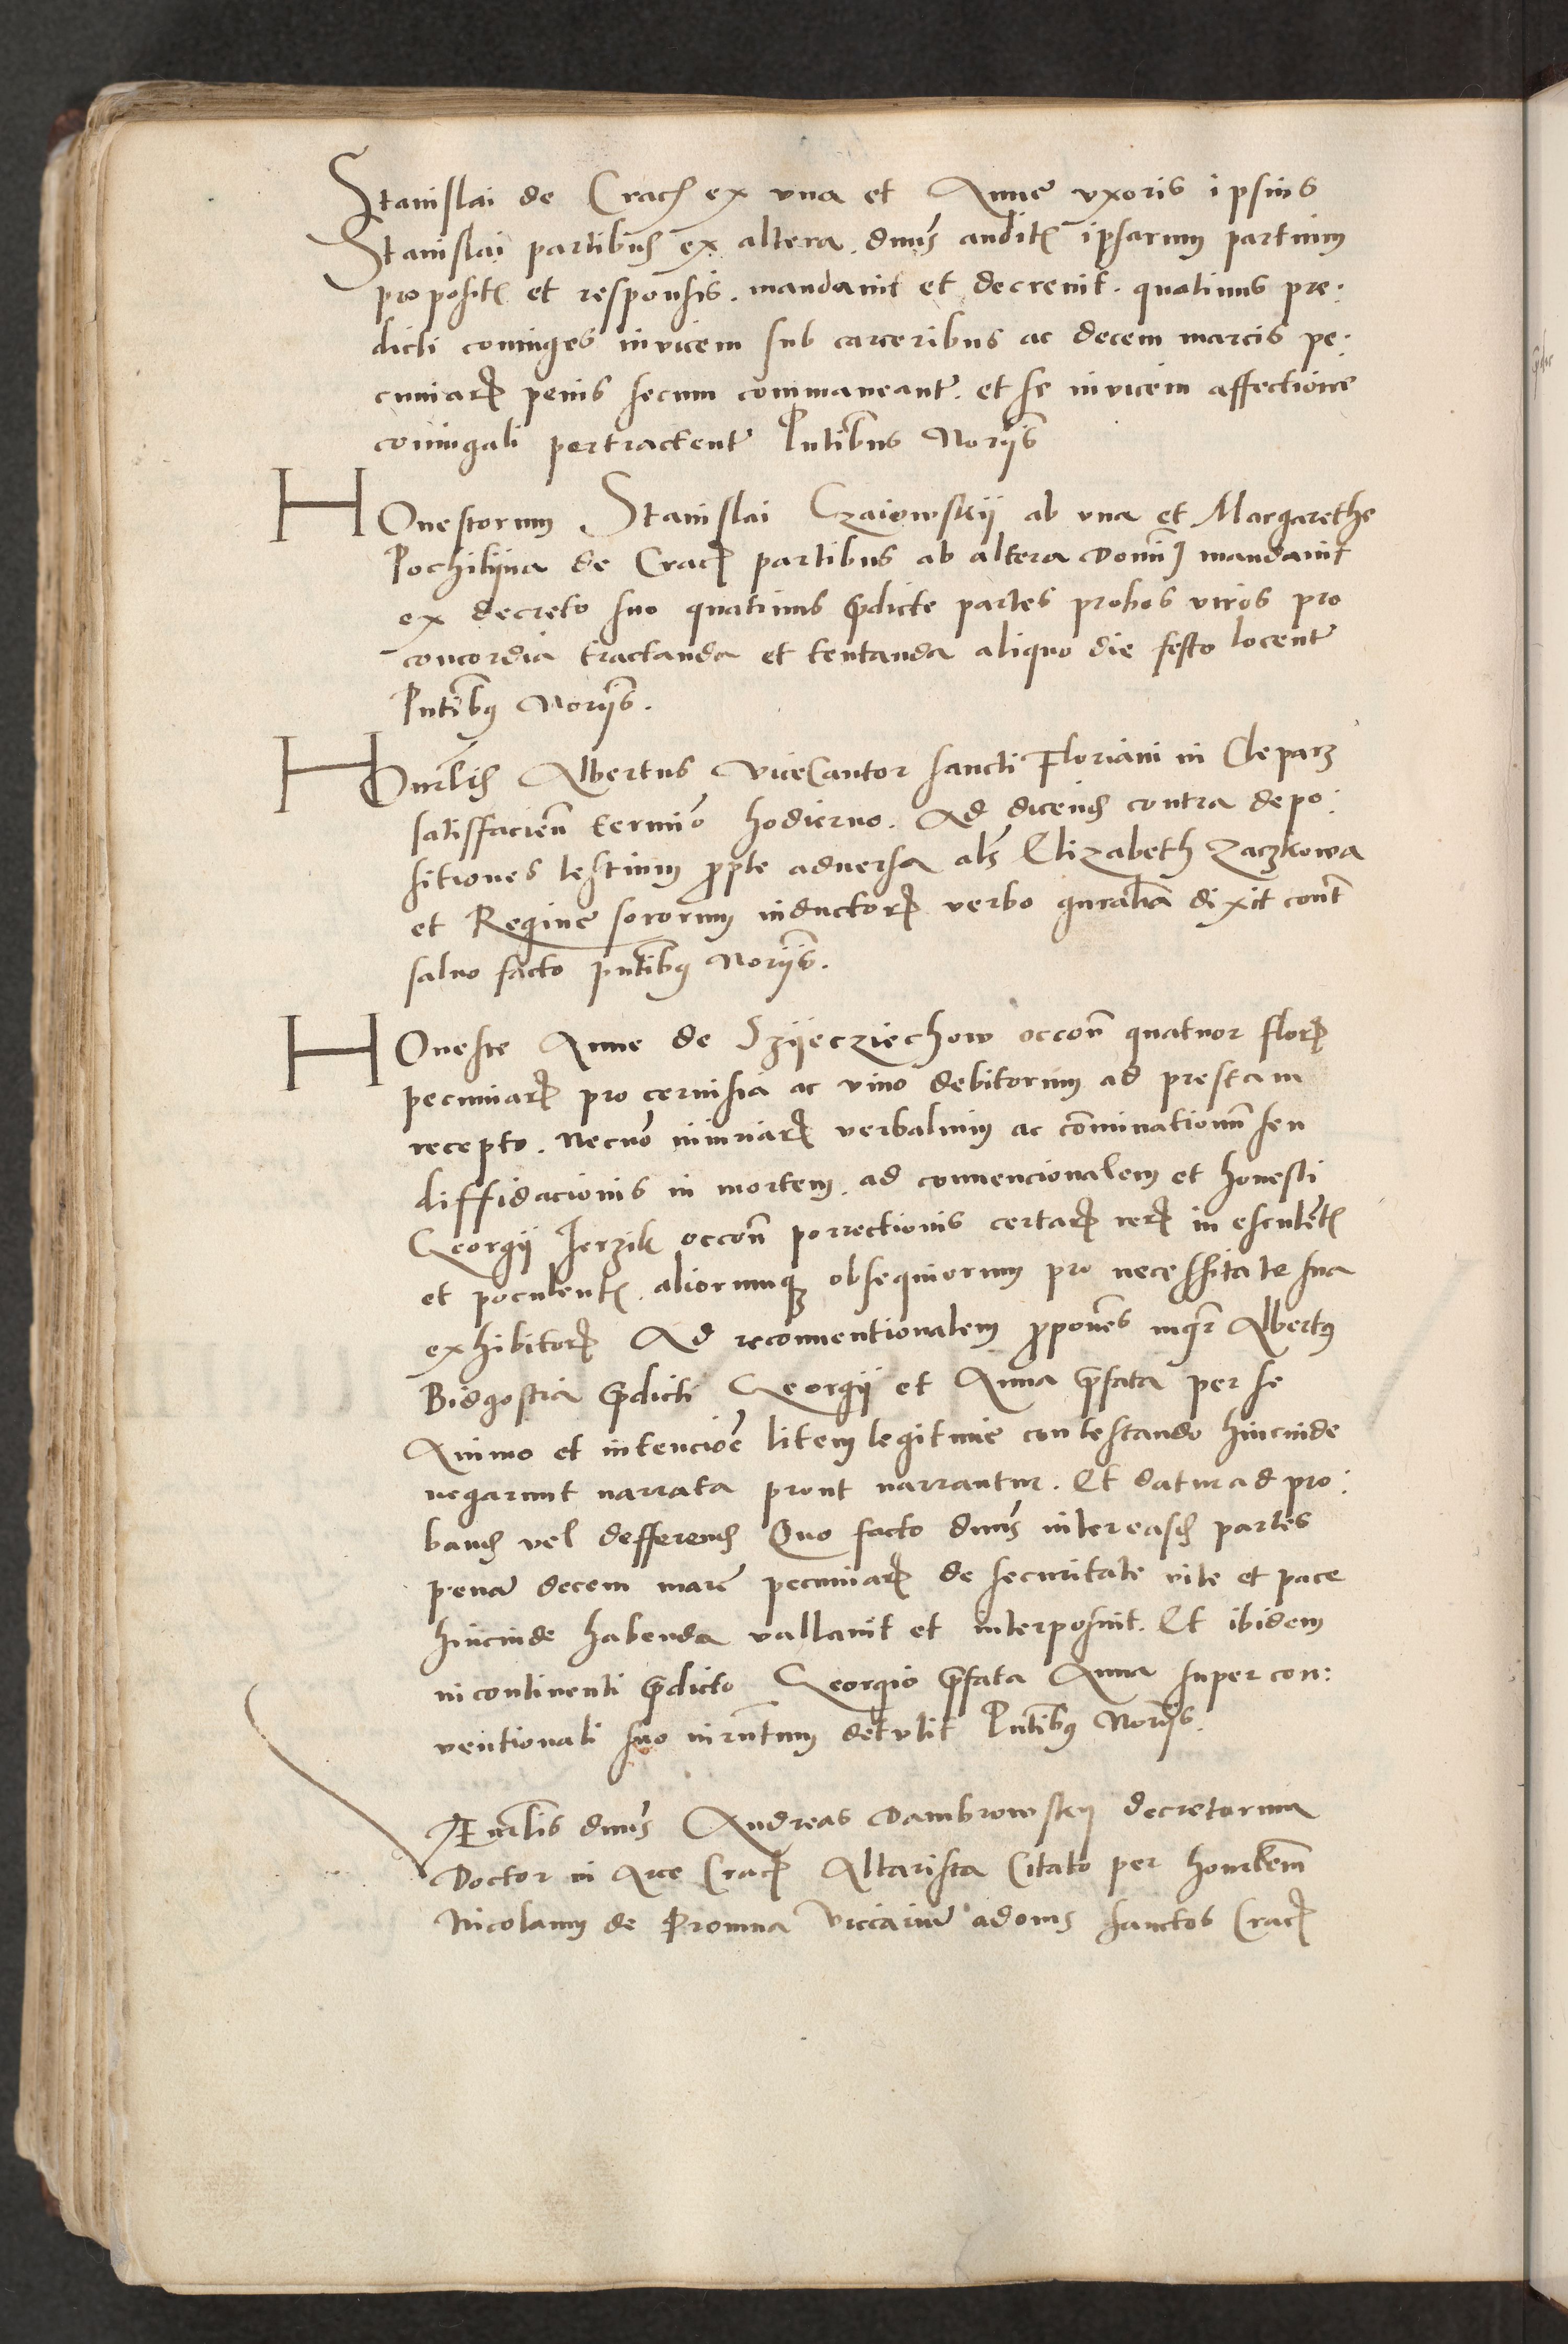 Stanislai de Crach ex vna et Anne vxoris ipsius
Stanislai partibus ex altera. dnus audit ipsarum partium
proposit et responsis. mandauit et decreuit. quatinus pre:
dicti coniuges inuicem sub carceribus ac decem marcis pe:
cuniar penis secum commaneant. et se inuicem affectione
coniugali pertractent Pntibus Norijs
HOnestorum Stanislai Czaiowskij ab vna et Margarethe
Pochilijna de Crac partibus ab altera Domin mandauit
ex decreto suo quatinus pdicte partes probos viros pro
concordia tractanda et tentanda aliquo die festo locent
Pntibus Norijs.
HOnrlis Albertus ViceCantor sancti Floriani in Cleparz
satisfacien termino hodierno. Ad dicend contra depo:
sitiones testium pro pte aduersa als Elizabeth Zaczkowa
et Regine sororum inductor verbo gnralia dixit cont
saluo facto pntibus Norijs.
HOneste Anne de Szijecziechow occon quatuor flor
pecuniar pro ceruisia ac vino debitorum ad prestam
recepto. necno iniuriar verbalium ac cominationum seu
diffidacionis in mortem. ad conuencionalem et honesti
Georgij Jerzik occon porrectionis certar rer in esculent
et poculent. aliorumque obsequiorum pro necessitate sua
exhibitor Ad reconuentionalem propones mgr Albertus
Bidgostia pdicti Georgij et Anna pfata per se
Animo et intencioe litem legitime contestando hincinde
negarunt narrata prout narrantur. Et datur ad pro:
band vel defferend Quo facto dnus inter easd partes
pena decem marc pecuniar de securitate vite et pace
hincinde habenda vallauit et interposuit. Et ibidem
incontinenti pdicto Georgio pfata Anna super con:
uentionali suo iurntum detulit Pntibus Norijs.
Vnrlis dnus Andreas Dambrowskij decretorum
Doctor in Arce Crac Altarista Citato per honrlem
Nicolaum de Promna Vicarium ad oms sanctos Crac